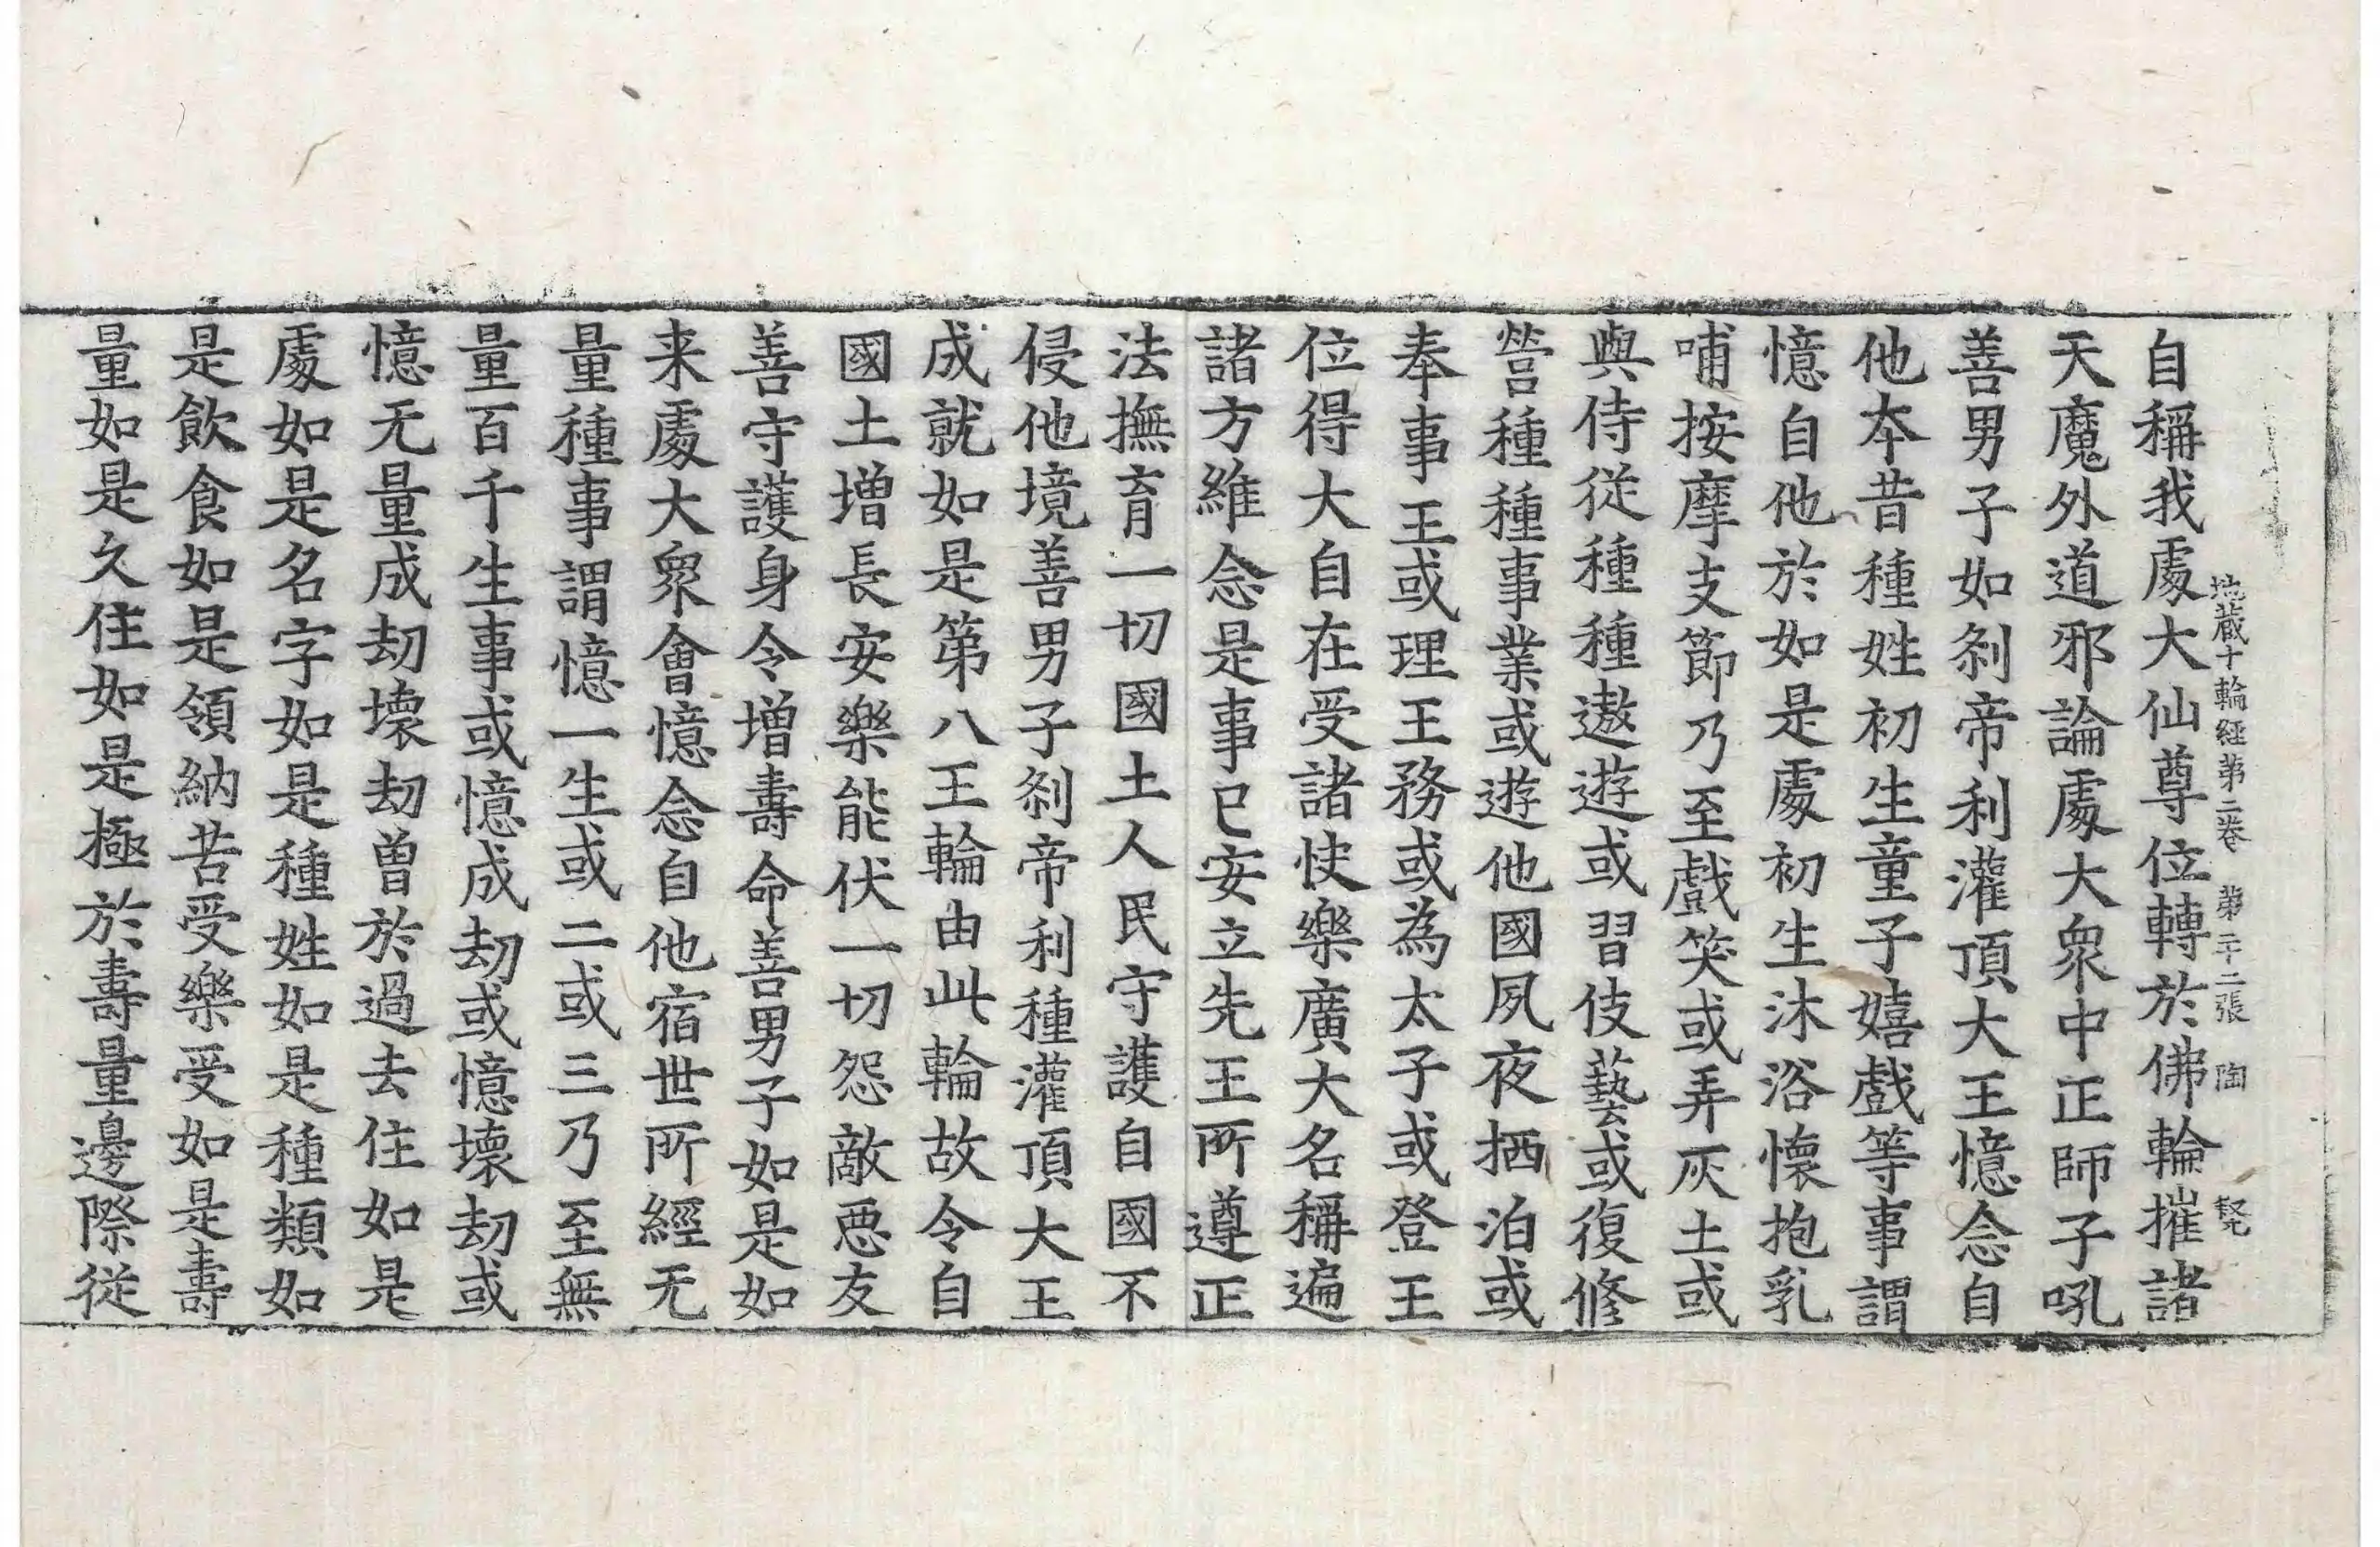 地藏十輪經第二卷 第二十二張 陶
自稱我處大仙尊位轉於佛輪摧諸
天魔外道邪論處大眾中正師子吼
善男子如刹帝利灌頂大王憶念自
他本昔種姓初生童子嬉戲等事謂
憶自他於如是處初生沐浴懷抱乳
哺按摩支節乃至戲笑或弄灰土或
與侍從種種遨遊或習伎藝或復修
營種種事業或遊他國夙夜栖泊或
奉事王或理王務或為太子或登王
位得大自在受諸快樂廣大名稱遍
諸方維念是事已安立先王所遵正
法撫育一切國土人民守護自國不
侵他境善男子刹帝利種灌頂大王
成就如是第八王輪由此輪故令自
國土增長安樂能伏一切怨敵惡友
善守護身令增壽命善男子如是如
来處大眾會憶念自他宿世所經无
量種事謂憶一生或二或三乃至無
量百千生事或憶成劫或憶壞劫或
憶无量成劫壞劫曾於過去住如是
處如是名字如是種姓如是種類如
是飲食如是領納苦受樂受如是壽
量如是久住如是極於壽量邊際從